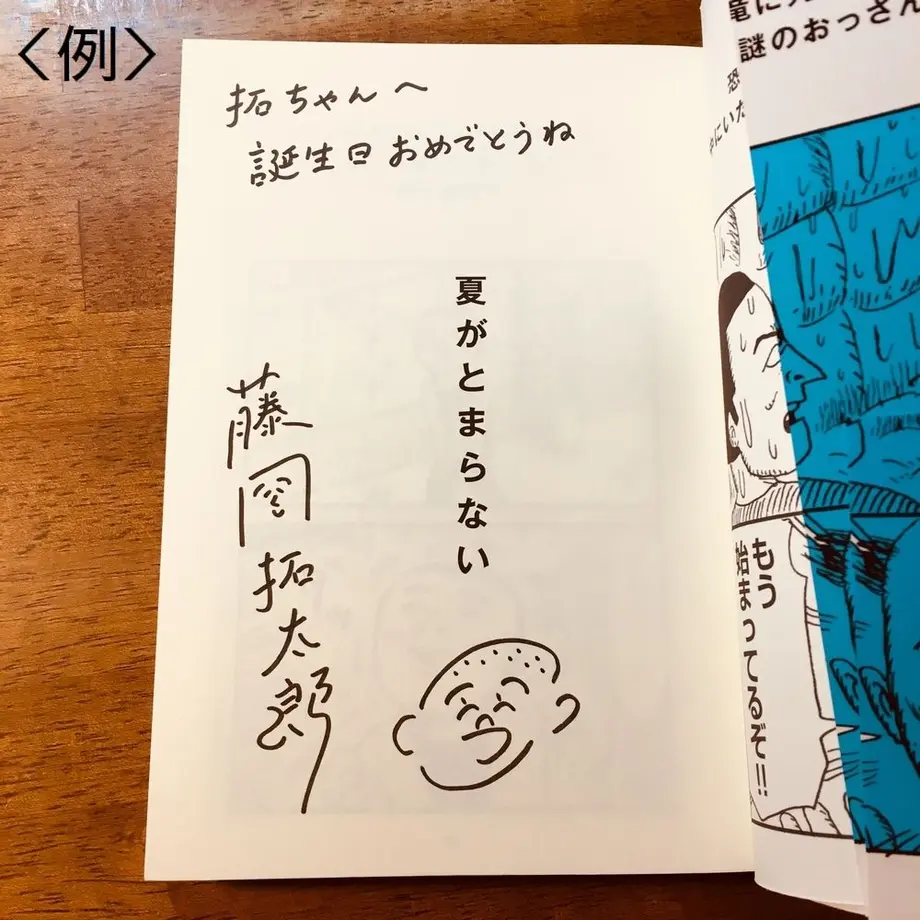 〈例〉
拓ちゃんへ
誕生日おめでとうね
夏がとまらない
藤岡拓太郎
謎のおっさん
もう
始まってるぞ!!